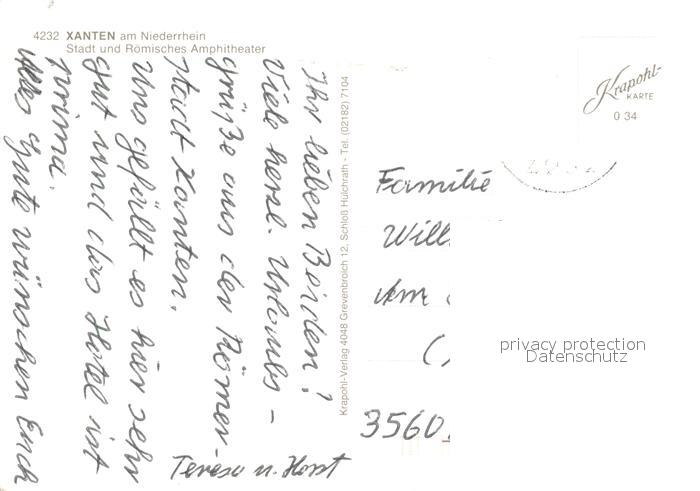 4232 XANTEN am Niederrhein
Stadt und Römisches Amphitheater
Ihr lieben Beiden!
Viele herzl. Urlaubs-
grüße aus der Römer-
stadt Xanten.
Uns gefällt es hier sehr
gut und das Hotel ist
prima.
Alles Gute wünschen Euch
Teresa u. Horst
Krapohl-Verlag 4048 Grevenbroich 12, Schloß Hülchrath - Tel. (02182) 7104
Krapohl-
KARTE
O 34
Familie
Will
Am
3560
privacy protection
Datenschutz